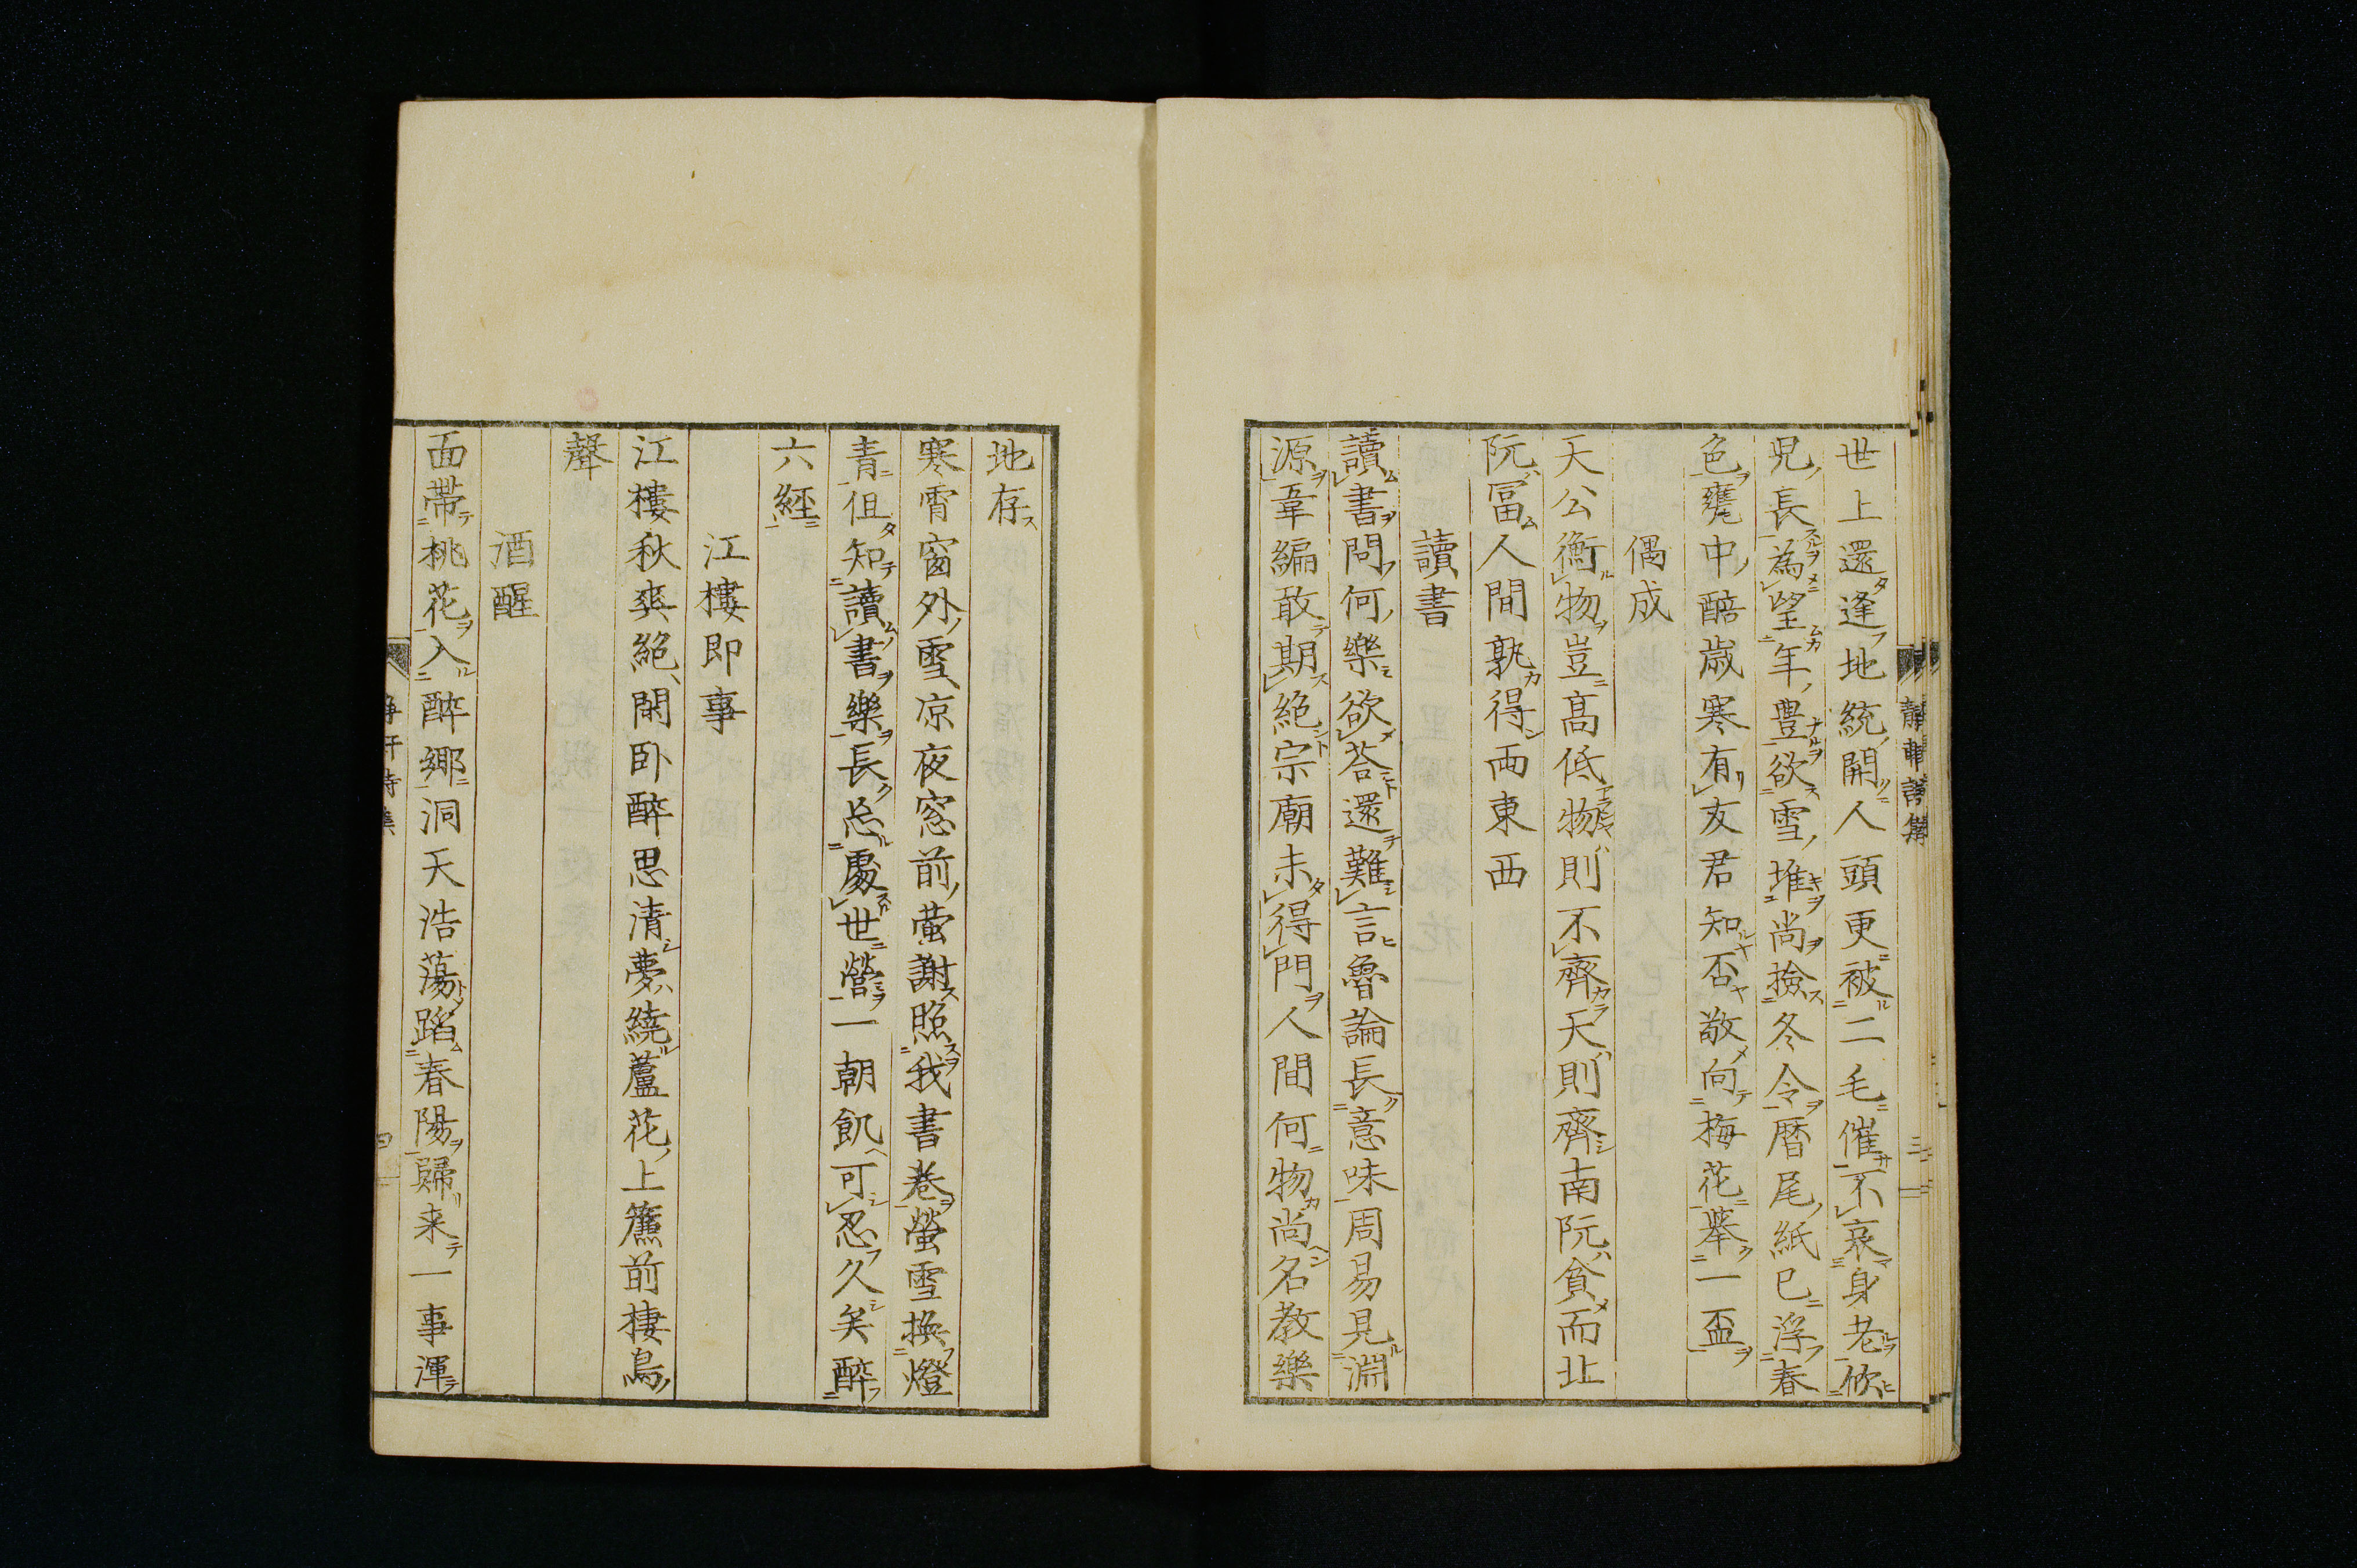 世上還逢地統開人頭更被二毛催不哀身老攸
児長為望年豊欲雪堆尚撿冬令暦尾紙已浮春
色甕中醅歳寒有友君知否敬向梅花挙一盃
偶成
天公衡物豈髙低物則不齊天則齊南阮貧而北
阮冨人間孰得両東西
讀書
讀書問何樂欲荅還難言魯論長意味周易見淵
源韋編敢期絶宗廟未得門人間何物尚名教樂
地存
寒宵窗外雪凉夜窓前螢謝照我書巻螢雪換燈
青但知讀書樂長忘處世營一朝飢可忍久矣醉
六經
江樓即事
江樓秋爽絶閑卧醉思清夢繞蘆花上簾前棲鳥
聲
酒醒
面帶桃花入醉郷洞天浩蕩蹈春陽歸来一事渾
靜軒詩集
三
四